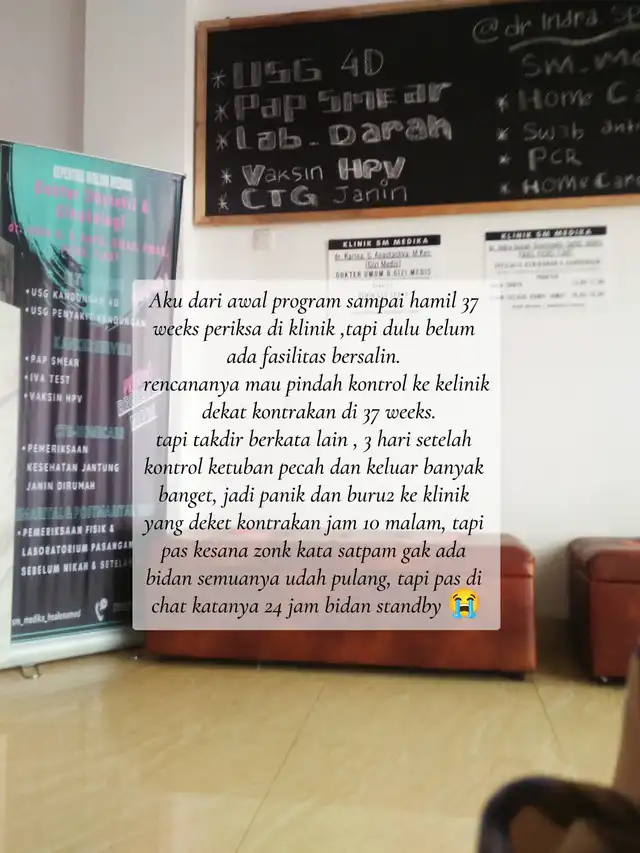 @dr Indra. Sp
* USG 4D
* Pap SMEar
* Lab. Darah
* Vaksin HPV
* CTG Janin
SM.
* Home
* Swab
* PCR
* Home Care
KLINIK SM MEDIKA
dr. Karina. S.
(Gizi Medis)
DOKTER UMUM & GIZI MEDIS
KLINIK SM MEDIKA
• USG KANDUNGAN 4D
• USG PENYAKIT KANDUNGAN
• PAP SMEAR
• IVA TEST
• VAKSIN HPV
• PEMERIKSAAN
KESEHATAN JANTUNG
JANIN DIRUMAH
• PEMERIKSAAN FISIK &
LABORATORIUM PASANGAN
SEBELUM NIKAH & SETELAH
Aku dari awal program sampai hamil 37
weeks periksa di klinik ,tapi dulu belum
ada fasilitas bersalin.
rencananya mau pindah kontrol ke kelinik
dekat kontrakan di 37 weeks.
tapi takdir berkata lain , 3 hari setelah
kontrol ketuban pecah dan keluar banyak
banget, jadi panik dan buru2 ke klinik
yang deket kontrakan jam 10 malam, tapi
pas kesana zonk kata satpam gak ada
bidan semuanya udah pulang, tapi pas di
chat katanya 24 jam bidan standby 😭